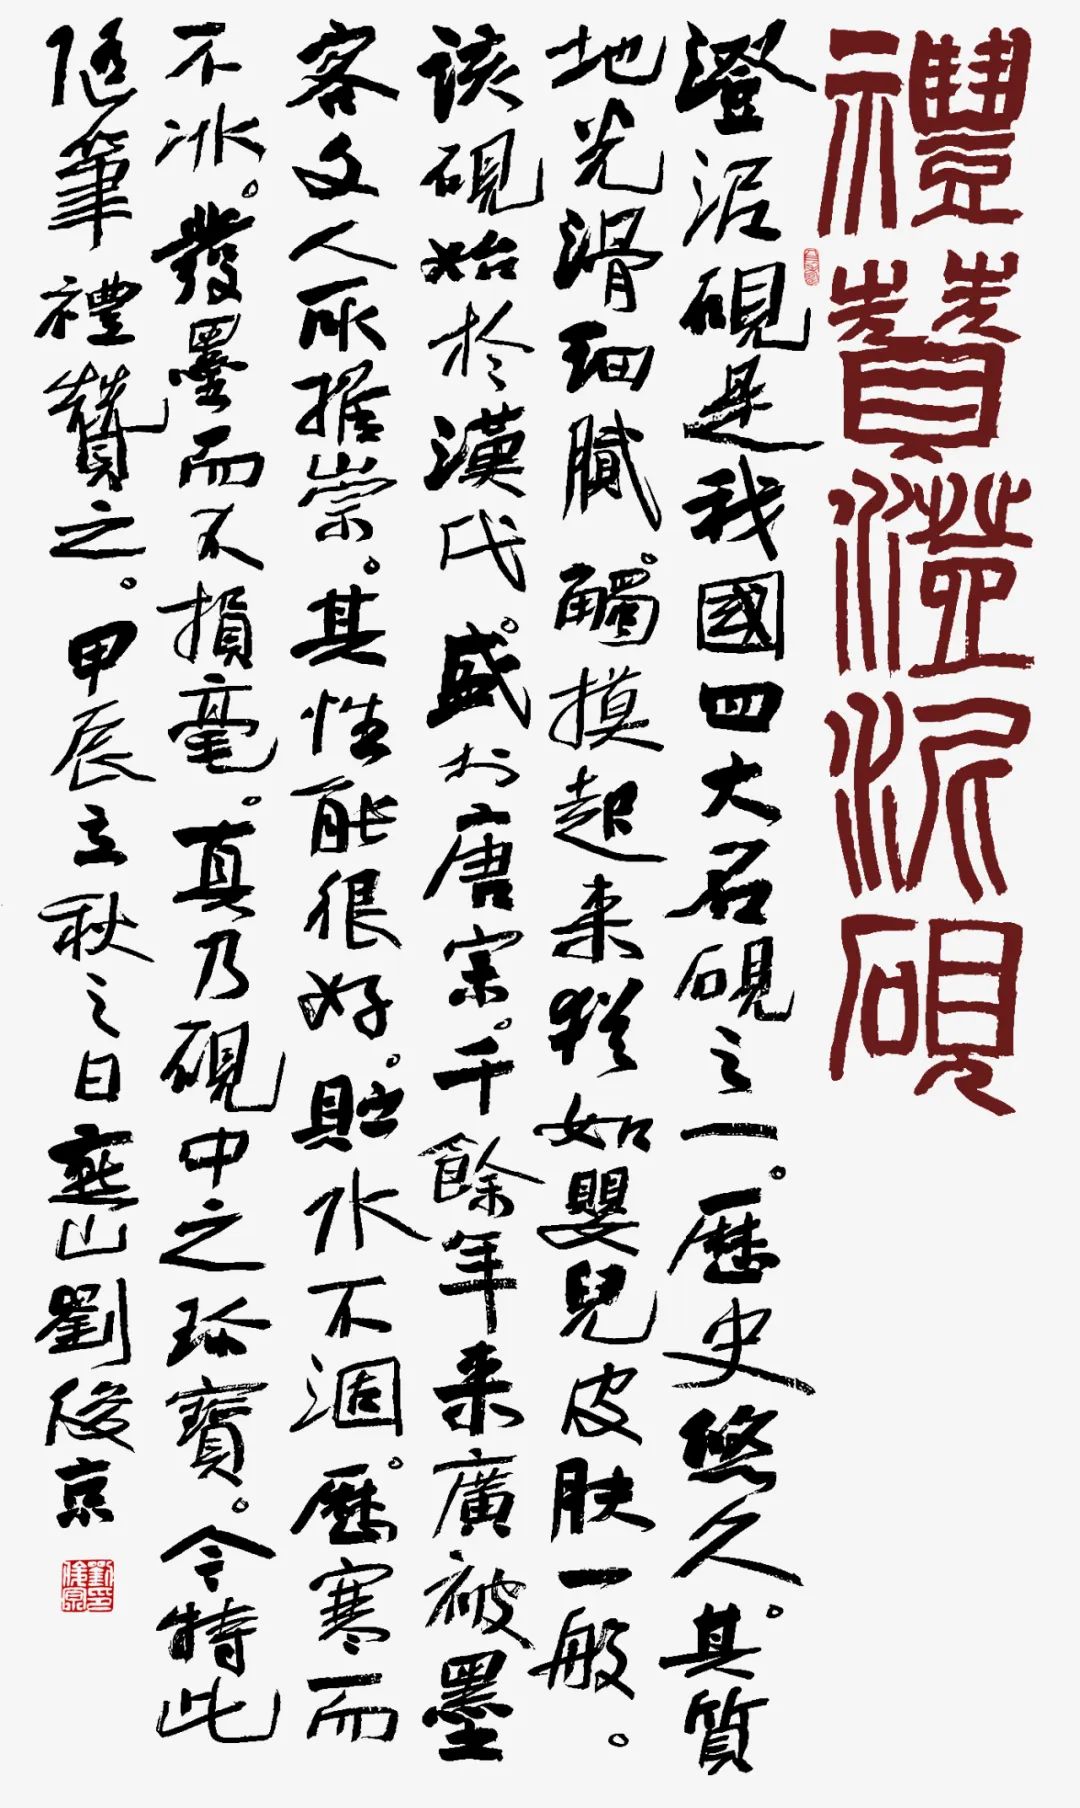 禮贊澄泥硯
澄泥硯是我國四大名硯之一。歷史悠久。其質
地光滑細膩。觸摸起来猶如嬰兒皮肤一般。
該硯始於漢代。盛於唐宋。千餘年来廣被墨
客文人所推崇。其性能很好。貯水不涸。歷寒而
不冰。發墨而不損毫。真乃硯中之珍寶。今特此
隨筆禮贊之。甲辰立秋之日燕山劉俊京